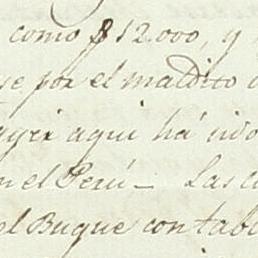 como $12.000, y
por el maldito
aqui há sido
en el Perú — Las
el Buque con tabl